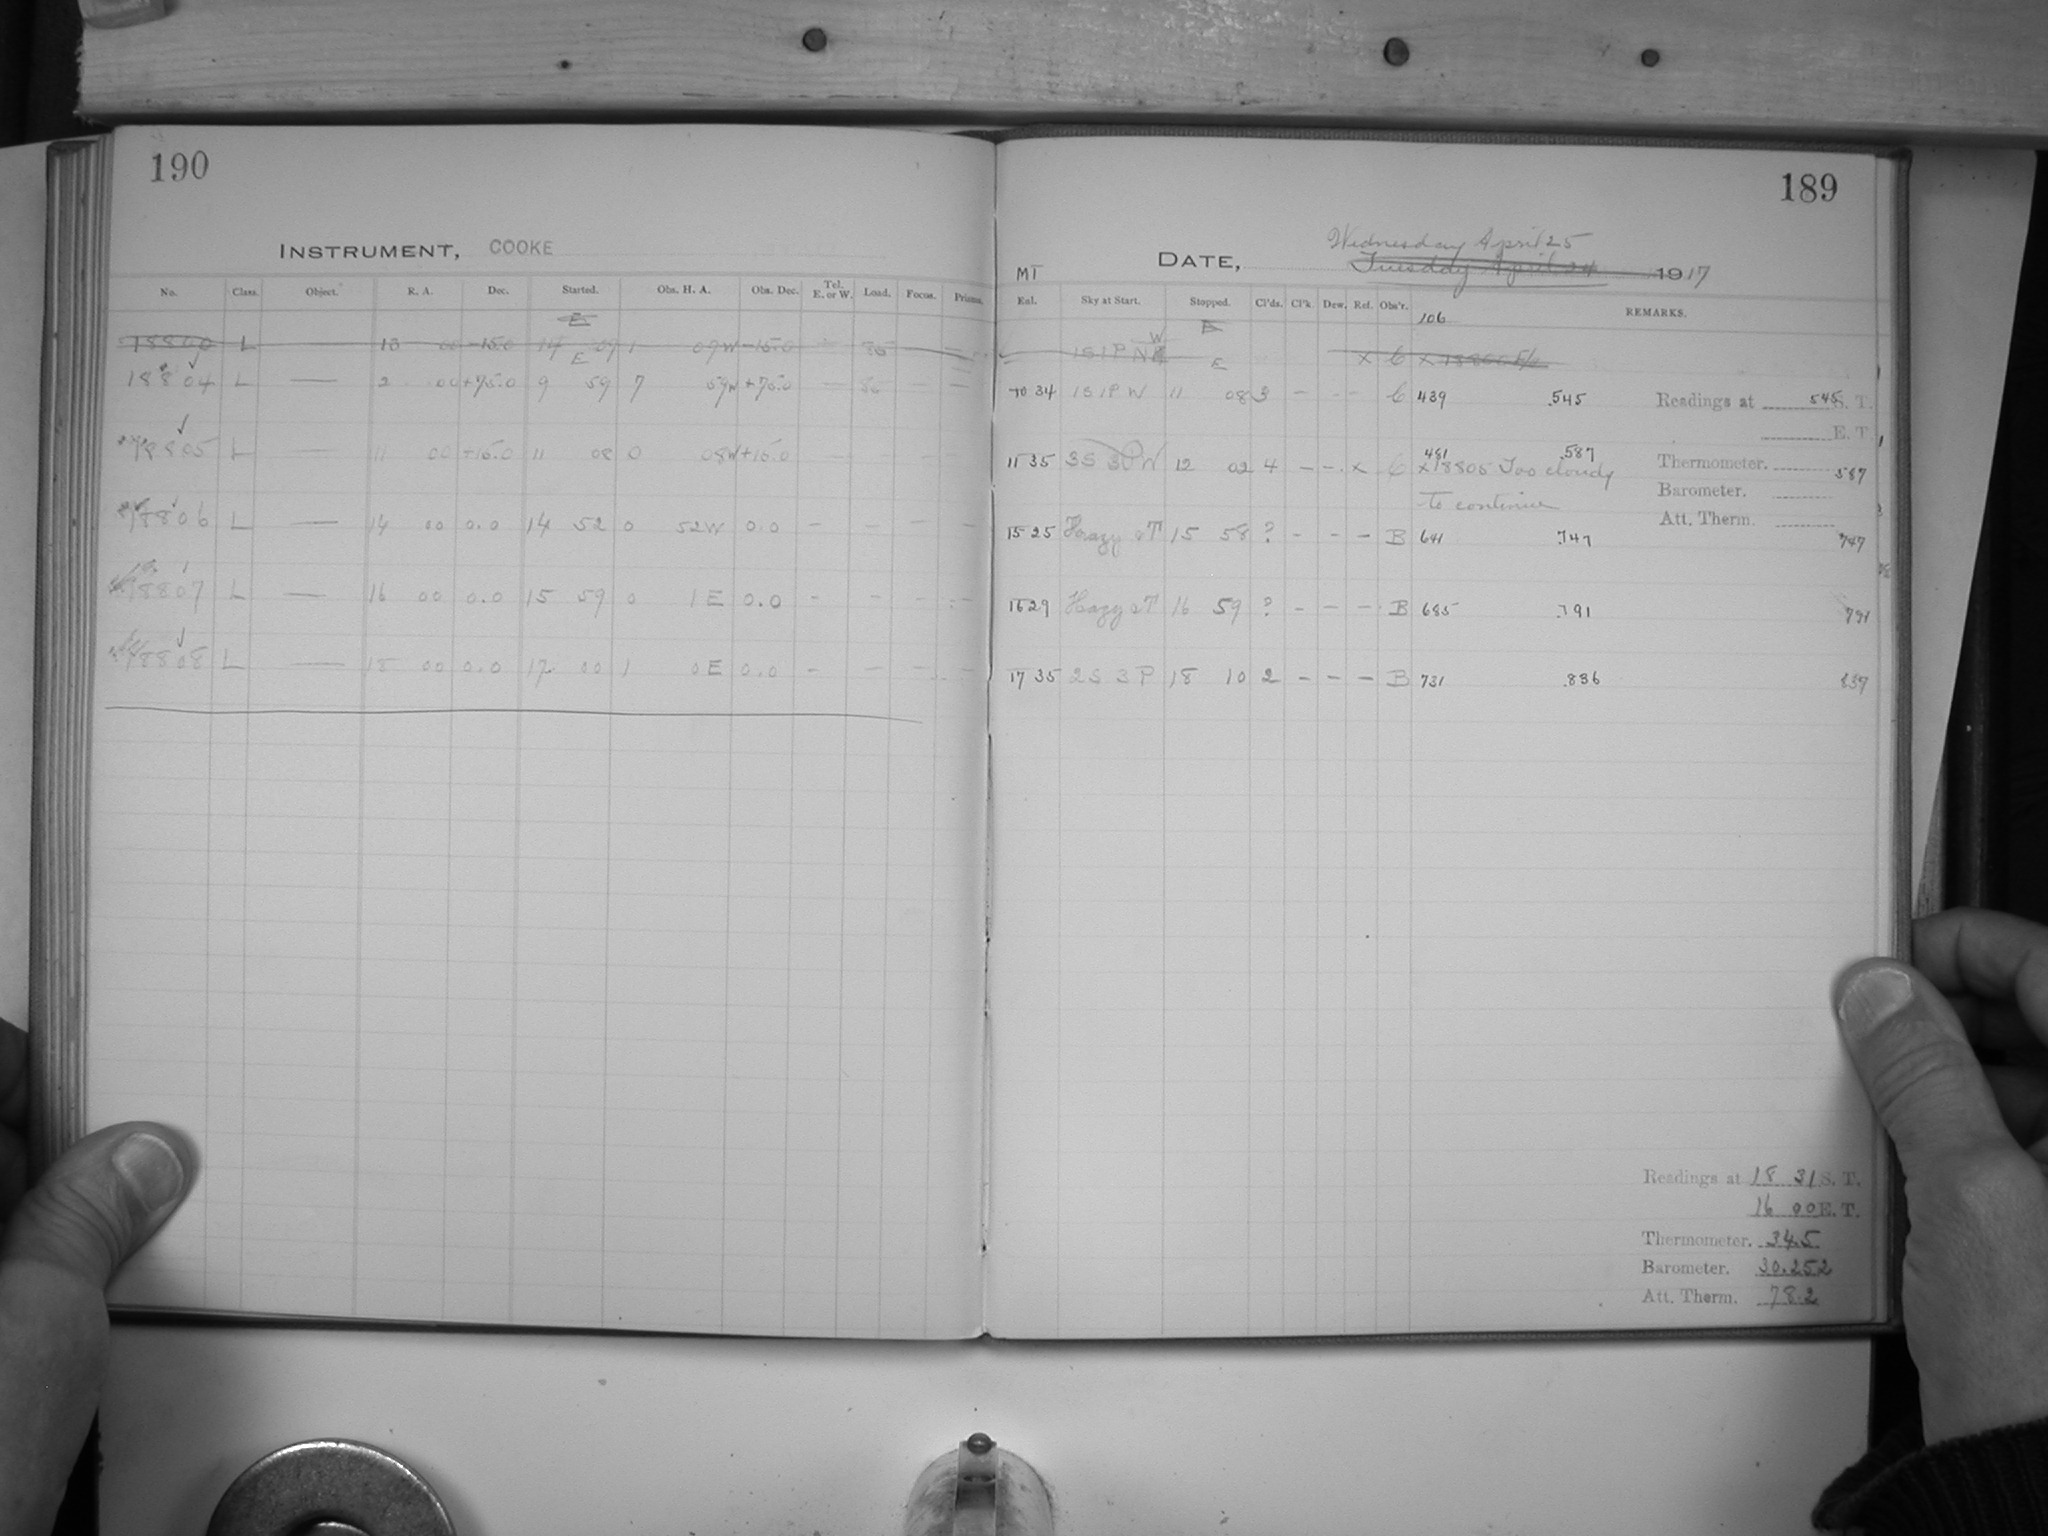 190
INSTRUMENT, COOKE
No. Class. Object. R. A. Dec. Started. Obs. H. A. Obs. Dec. Tel. E. or W. Load. Focus. Prisms.
E
18800 L 13 00 -15.0 14 09 1 09W -15.0 85
E
18804 L — 2 00 +75.0 9 59 7 59W +75.0 — —
18805 L — 11 00 +15.0 11 08 0 08W +15.0
18806 L — 14 00 0.0 14 52 0 52W 0.0 - - - -
18807 L — 16 00 0.0 15 59 0 1 E 0.0 - - - -
18808 L — 18 00 0.0 17 00 1 0 E 0.0 - - - -
189
Wednesday April 25
DATE, Tuesday April 24 1917
MT
Enl. Sky at Start. Stopped. Cl'ds. Cl'k. Dew. Ref. Obs'r. REMARKS.
106
1S1PN W x C x 18800
E
10 34 1S1PW 11 08 3 — — - C 439 .545
Readings at 545 S. T.
E. T.
11 35 3S 3PW 12 02 4 — — x C 481 .587
x18805 Too cloudy
to continue
Thermometer. 587
Barometer.
Att. Therm.
15 25 Hazy ST 15 58 ? - - - B 641 .747 747
16 29 Hazy ST 16 59 ? - - - B 685 .791 791
17 35 2S 3P 18 10 2 - - - B 731 .836 837
Readings at 18 31 S. T.
16 00 E. T.
Thermometer. 34.5
Barometer. 30.252
Att. Therm. 78.2